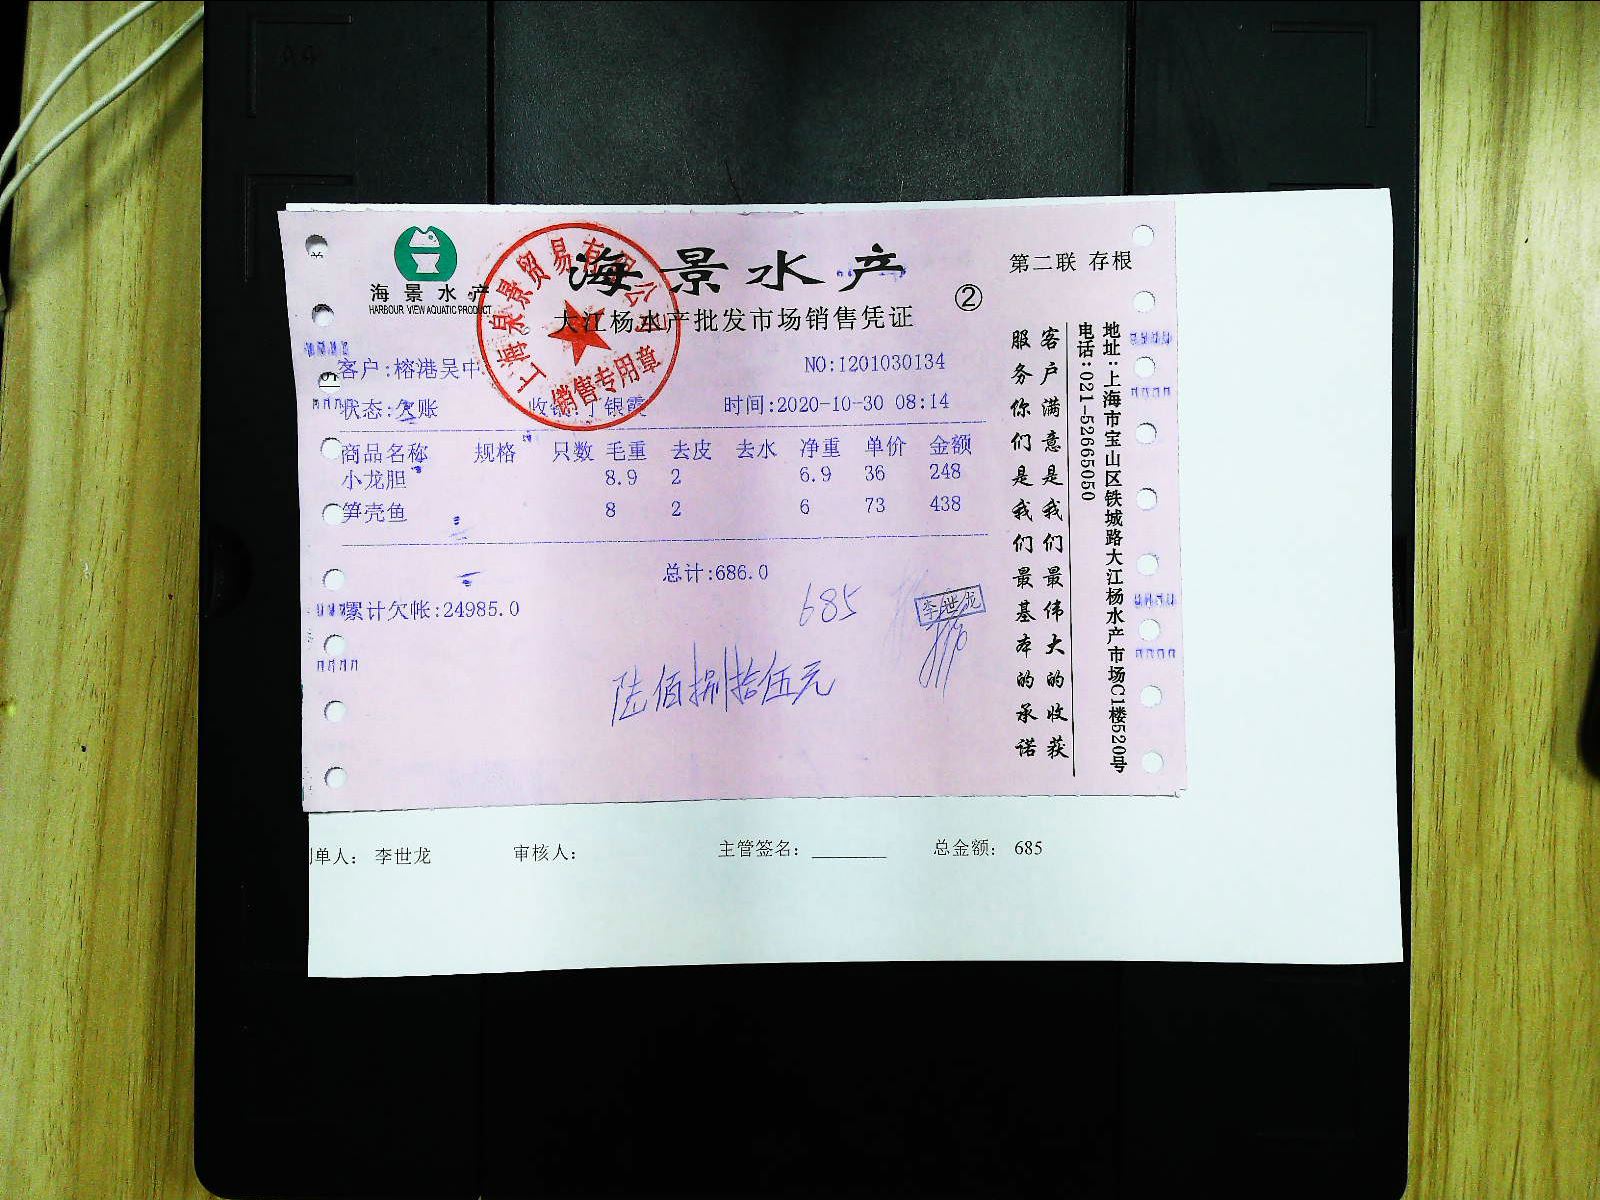 海景水产
HARBOUR VIEW AQUATIC PRODUCT
海景水产
大江杨水产批发市场销售凭证
②
第二联 存根
上海泉景贸易有限公司
销售专用章
客户:榕港吴中
NO:1201030134
状态:欠账
收银:丁银霞
时间:2020-10-30 08:14
商品名称 规格 只数 毛重 去皮 去水 净重 单价 金额
小龙胆 8.9 2 6.9 36 248
笋壳鱼 8 2 6 73 438
总计:686.0
累计欠帐:24985.0
685
李世龙
陆佰捌拾伍元
客户满意是我们最伟大的收获
服务你们是我们最基本的承诺
地址:上海市宝山区铁城路大江杨水产市场C1楼520号
电话:021-52665050
单人: 李世龙 审核人: 主管签名: 总金额: 685